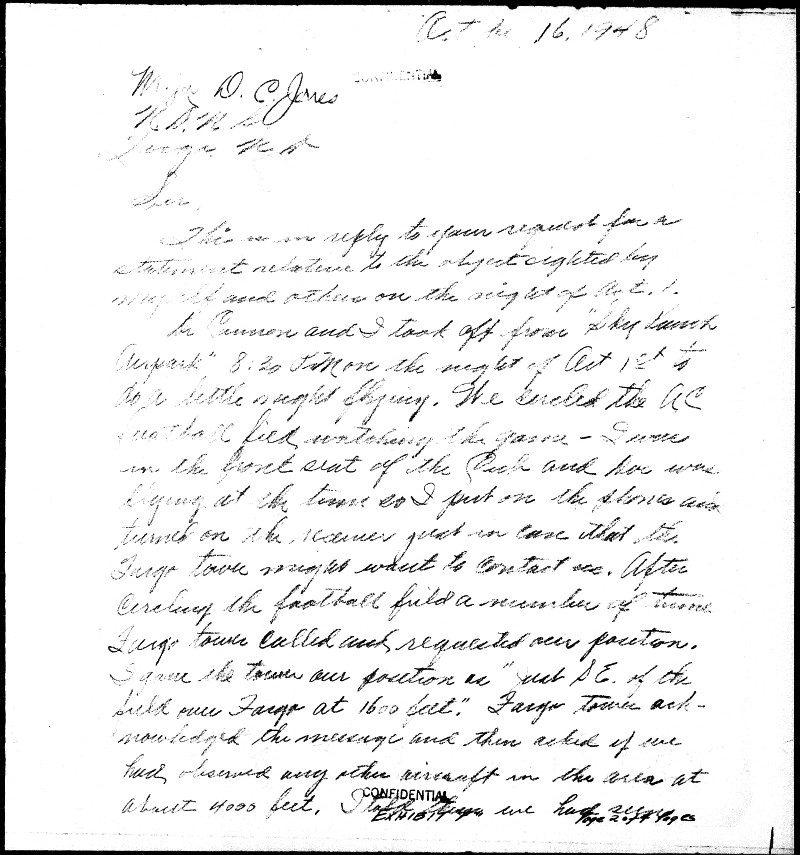 Oct 16, 1948
CONFIDENTIAL
Major D. C. Jones
N.D.N.G.
Fargo, N.D.
Sir,
This is in reply to your request for a
statement relative to the object sighted by
myself and others on the night of Oct. 1.
Dr Cannon and I took off from "Sky Ranch
Airpark" 8:20 P.M on the night of Oct 1st to
do a little night flying. We circled the AC
football field watching the game - I was
in the front seat of the Cub and Doc was
flying at the time so I put on the phones and
turned on the receiver just in case that the
Fargo tower might want to contact us. After
circling the football field a number of times
Fargo tower called and requested our position.
I gave the tower our position as "just SE. of the
field over Fargo at 1600 feet". Fargo tower ack-
nowledged the message and then asked if we
had observed any other aircraft in the area at
about 4000 feet. I told them we had seen
CONFIDENTIAL
Exhibit Page 2 of Pages